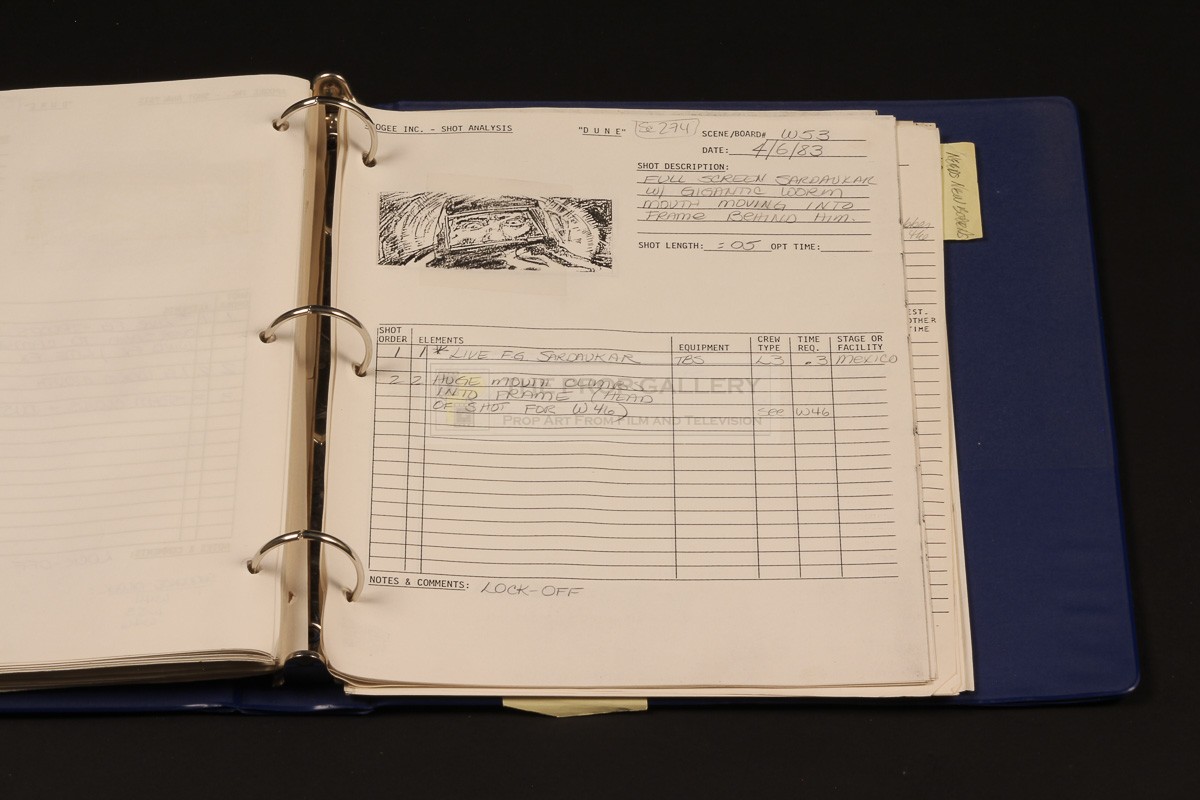 OGEE INC. - SHOT ANALYSIS
"D U N E"
Sc 274
SCENE/BOARD# W53
DATE: 4/6/83
SHOT DESCRIPTION:
FULL SCREEN SARDAUKAR
W/ GIGANTIC WORM
MOUTH MOVING INTO
FRAME BEHIND HIM.
SHOT LENGTH: :05 OPT TIME:
SHOT ORDER ELEMENTS EQUIPMENT CREW TYPE TIME REQ. STAGE OR FACILITY
1 1 * LIVE F.G. SARDAUKAR TBS L3 .3 MEXICO
2 2 HUGE MOUTH COMES
INTO FRAME (HEAD
OF SHOT FOR W46) SEE W46
GALLERY
PROP ART FROM FILM AND TELEVISION
NOTES & COMMENTS: LOCK-OFF
EST.
OTHER
TIME